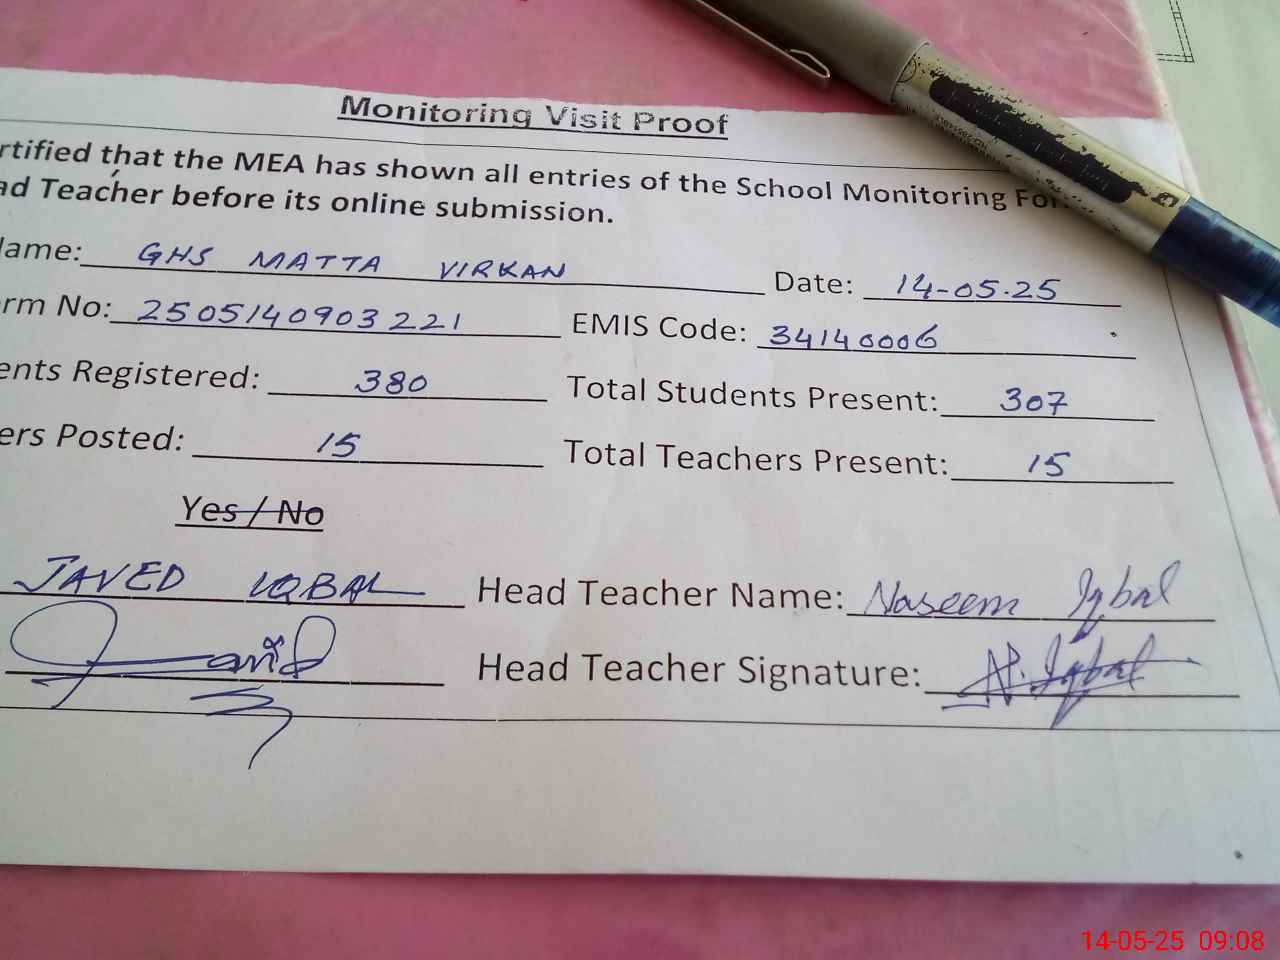 Monitoring Visit Proof
rtified that the MEA has shown all entries of the School Monitoring For
ad Teacher before its online submission.
Name: GHS MATTA VIRKAN Date: 14-05-25
orm No: 2505140903221 EMIS Code: 34140006
ents Registered: 380 Total Students Present: 307
ers Posted: 15 Total Teachers Present: 15
Yes / No
JAVED IQBAL Head Teacher Name: Naseem Iqbal
Javid Head Teacher Signature: N. Iqbal
14-05-25 09:08